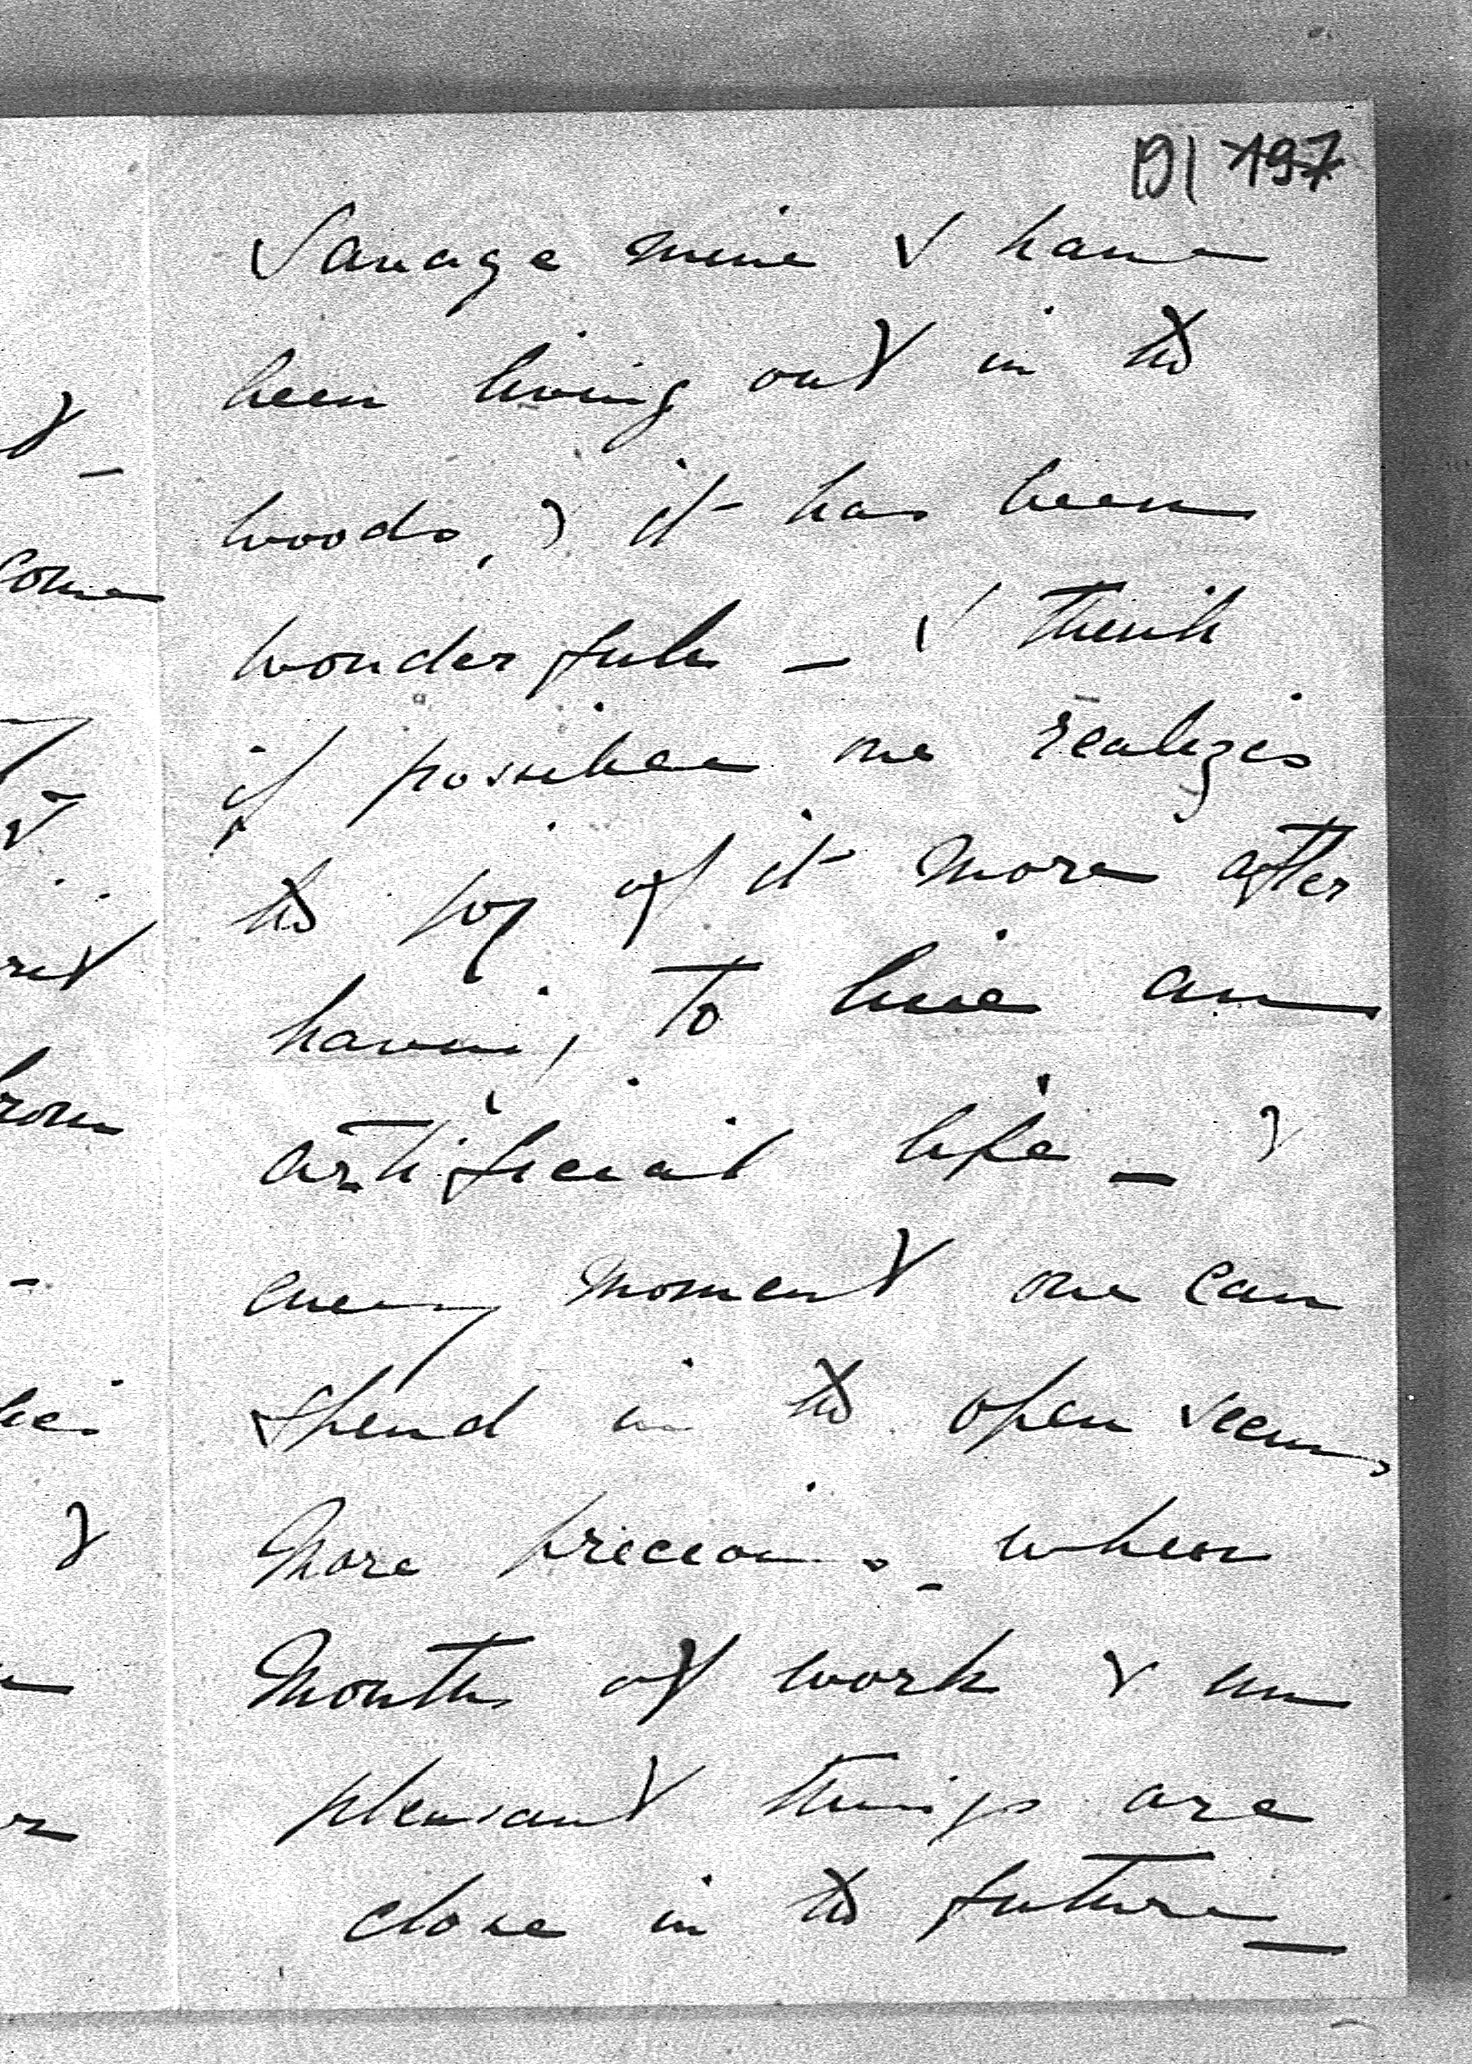 D| 197
Savage mine I have
been living out in the
woods, & it has been
wonderful – I think
if possible one realizes
the joy of it more after
having to live an
artificial life – &
every moment one can
spend in the open seems
more precious – when
months of work & un
pleasant things are
close in the future –